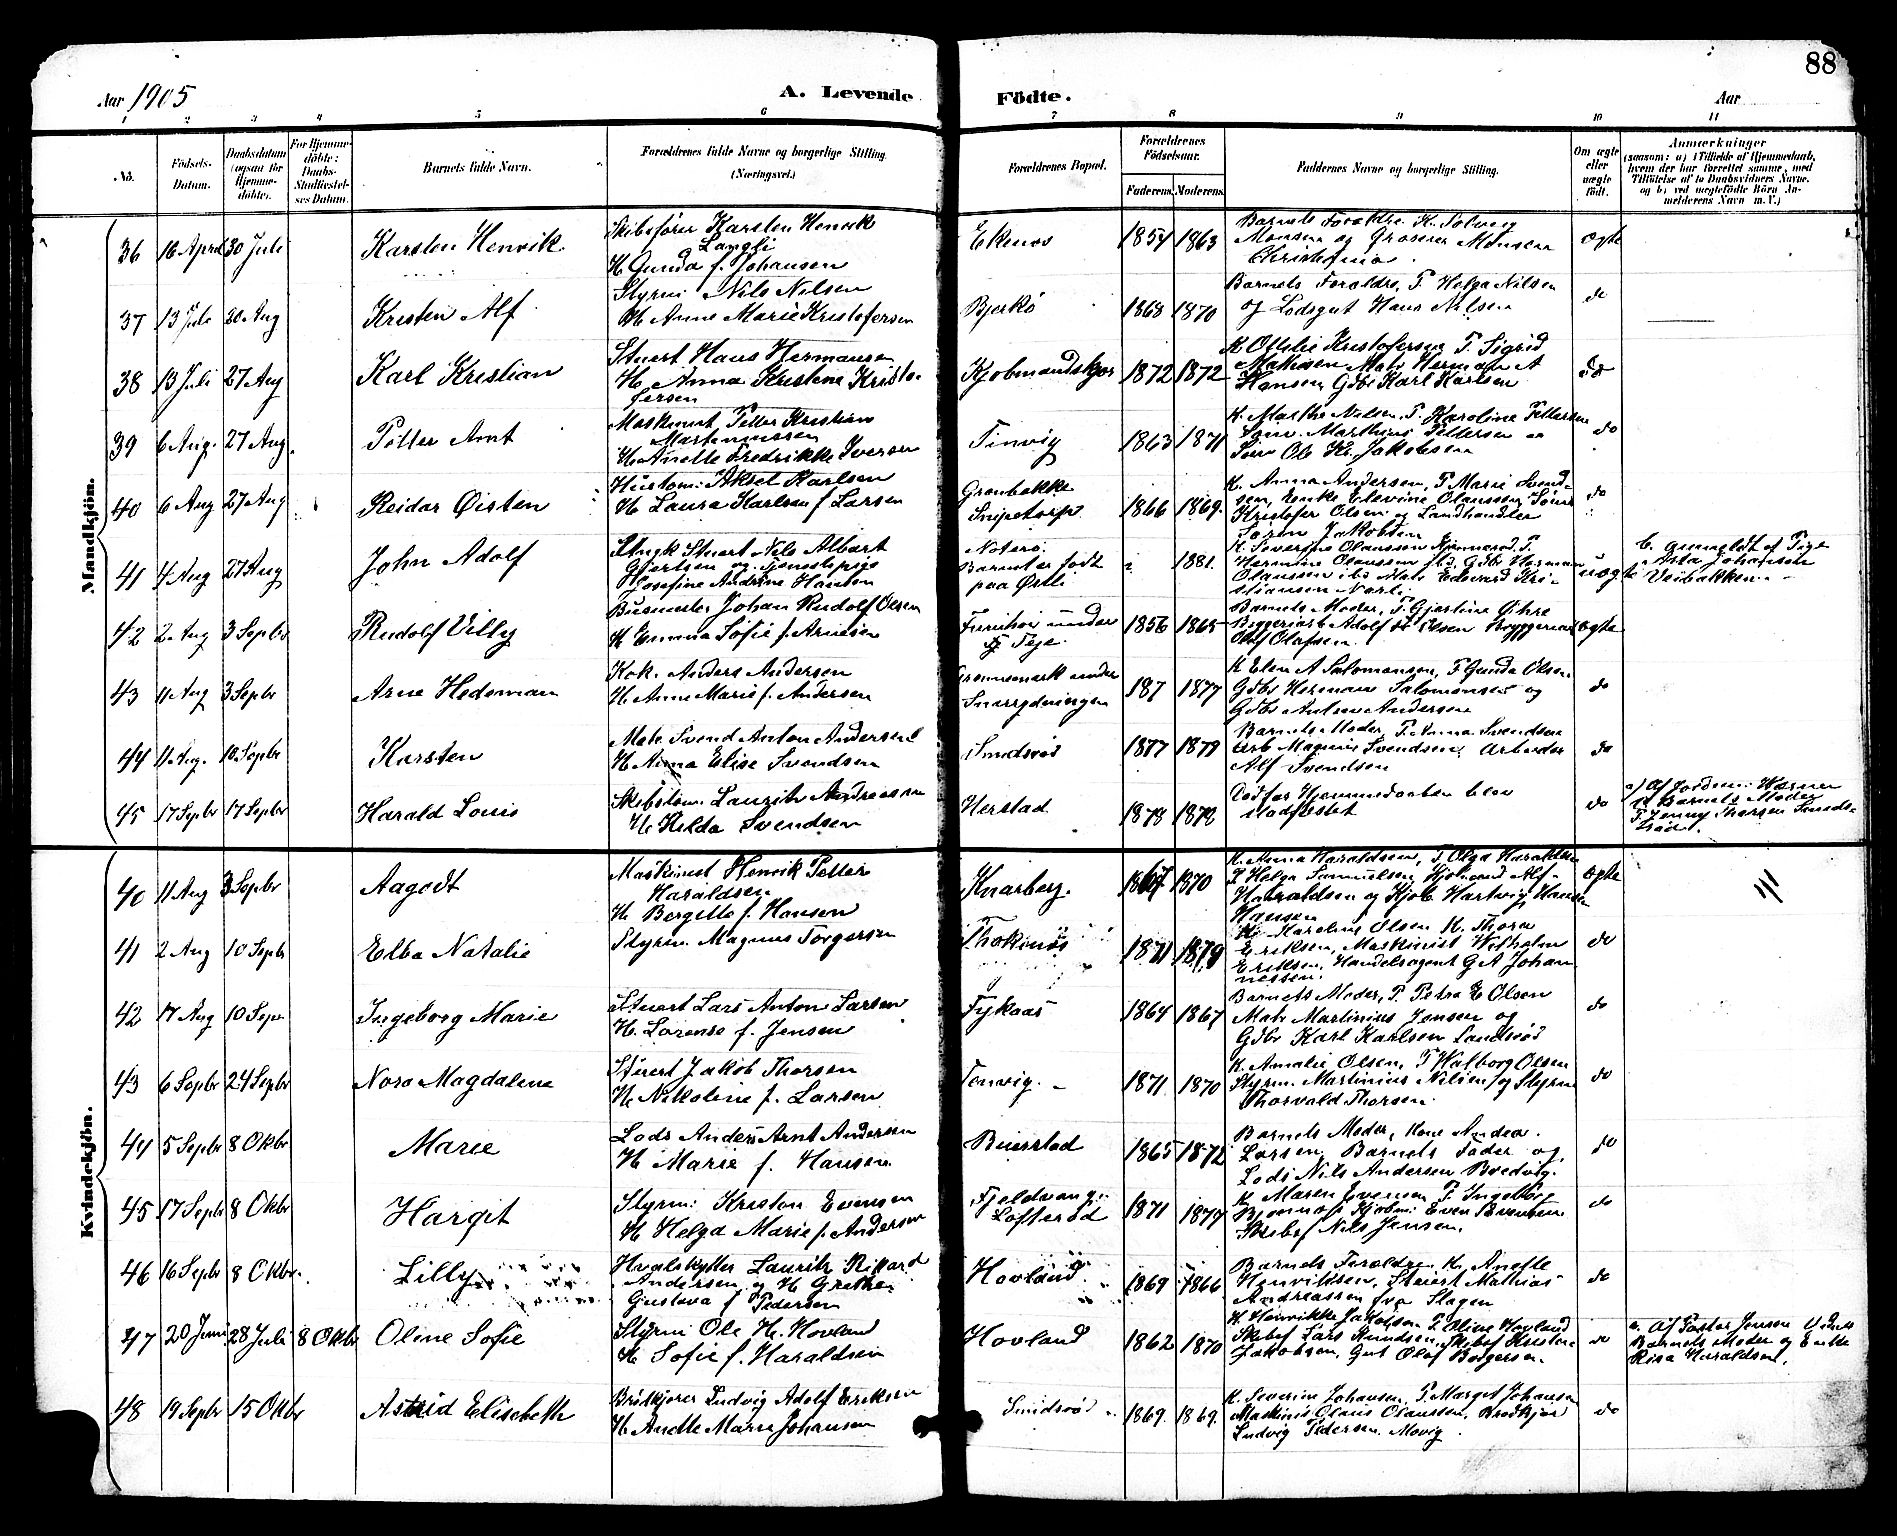 88
Aar 1905
A. Levende
Födte.
Aar
1 2 3 4 5 6 7 8 9 10 11
No.
Födsels-Datum.
Daabsdatum (ogsaa for Hjemme-döbte).
For Hjemme-döbte: Daabs-Stadfæstel-ses Datum.
Barnets fulde Navn.
Forældrenes fulde Navne og borgerlige Stilling. (Næringsvei.)
Forældrenes Bopæl.
Forældrenes Födselsaar.
Faderens. Moderens.
Faddernes Navne og borgerlige Stilling.
Om ægte eller uægte födt.
Anmærkninger
(saasom: a) i Tilfælde af Hjemmedaab, hvem der har forrettet samme, med Tilföielse af to Daabsvidners Navne. og b) ved uægtefödte Börn An-melderens Navn m. V.)
Mandkjön.
36 16 April 30 Juli Karsten Henvik. Skibsfører Karsten Henvik
Langli
H. Gunda f. Johansen Ekenes 1854 1863 Barnets Foreldre. K. Solveig
Monsen og Groserer Monsen
Christiania. ægte
37 13 Juli 20 Aug Kristen Alf Styrm Nils Nilsen
H. Anne Marie Kristofersen Bjerkø 1868 1870 Barnets Foreldre, P. Helga Nilsen
og Lodsgut Hans Nilsen do
38 13 Juli 27 Aug Karl Kristian Stuert Hans Hermansen
H. Anna Kristene Kristo-
fersen Kjøbmandskjær 1872 1872 K Otilie Kristofersen P. Sigrid
Mathisen Matr Herman A
Hansen Gdbr Karl Karlsen do
39 6 Aug. 27 Aug Petter Arnt Maskinist Petter Kristian
Martinussen
H. Anette Fredrikke Iversen Tinvig 1863 1871 K. Marthe Nilsen, P. Karoline Pettersen
Tøm. Marthius Pettersen og
Tøm Ole Kr. Jakobsen do
40 6 Aug 27 Aug Reidar Øisten Hustøm: Aksel Karlsen
H. Laura Karlsen f Larsen Grønbakke
Snipetorp 1866 1869. K. Anna Andersen, P Marie Svend-
sen, Enke Elevine Olaussen, Tøm
Kristofer Olsen og Landhandler
Søren Jakobsen do
41 4 Aug 27 Aug John Adolf Ungk Stuert Nils Albert
Gjertsen og Tjenestepige
Josefine Andrine Hansen Nøterø.
Barnet er født
paa Østli 1881. K. Severine Olaussen P.
Hermine Olaussen Gdbr Herman
Olaussen Matr Edvard Kri-
stiansen Narli uægte b. anmeldt af Pige
Asta Johansen
Veibakken
42 2 Aug 3 Sepbr Rudolf Villy Busmester Johan Rudolf Olsen
H Emma Sofie f. Arnesen Furuhei under
Teje. 1856 1865 Barnets Moder, P. Gjertine Øihre
Bryggeriarb Adolf Olsen Bryggeriarb
Olaf Olafsen ægte
43 11 Aug 3 Sepbr Arne Hedeman Kok. Anders Andersen
H. Anne Marie f. Andersen Grønnemark under
187 1877 K Elen A Salomonsen, P Gunda Olsen
Gdbr Herman Salomonsen og
Gdbr Anton Andersen do
44 11. Aug. 10. Sepbr Karsten Matr Svend Anton Andersen
H Anna Elise Svendsen Smidsrød 1877 1879 Barnets Moder, P. Anna Svendsen
arb Magnus Svendsen. Arbeider
Alf Svendsen do
45 17 Sepbr 17 Sepbr Harald Louis Skibstøm. Lauritz Andreassen
H. Hilda Svendsen Herstad 1878 1872 Død før Hjemmedaaben blev
stadfæstet do a) Af Jordem: Warner
v Barnets Moder
P. Jenny Thorsen Smids-
rød.
Kvindekjön.
40 11 Aug 3 Sepbr Aagodt Maskinist Henrik Petter
Haraldsen
H. Bergitte f. Hansen Knarberg. 1867 1870 K. Anna Haraldsen, P Olga Haraldsen
P Helga Samuelsen Kjøbmand Alf
Haraldsen og Kjøb. Hartvig Hansen
Hansen ægte
41 2 Aug 10 Sepbr Elba Natalie Styrm. Magnus Torgersen 1871 1879 K. Karoline Olsen K. Thora
Eriksen, Maskinist Wilhelm
Eriksen, Handelsagent G A Johan
nessen. do
42 17 Aug 10 Sep. Ingeborg Marie Stuert Lars Anton Larsen
H. Lorense f. Jensen Fykaas 1864 1867 Barnets Moder, P. Petra E Olsen
Matr Martinius Jensen og
Gdbr Karl Karlsen Sandsrød do
43 6 Sepbr 24 Sepbr Nora Magdalene Stuert Jakob Thorsen
H. Nikoline f. Larsen Tenvig. 1871 1870 K. Amalie Olsen, P Walborg Olsen
Styrm. Martinius Nilsen og Styrm
Thorvald Thorsen. do
44 5 Sepbr 8 Okbr Marie Lods Anders Arnt Andersen
H Marie f. Hansen Beierstad 1865 1872 Barnets Moder, Kone Andrea
Larsen, Barnets Fader og
Lods Nils Andersen Bredvig. do
45 17 Sepbr 8 Okbr Hargit Styrm: Kristen Evensen
H Helga Marie f. Andersen Fjeldvang
Lofterød 1871 1877 K. Maren Evensen P. Ingeborg
Kjøbm: Even Evensen
Skibsf Nils Jensen. do
46 16 Sepbr 8 Okbr. Lilly Hvalskytter Lauritz Rikard
Andersen og H Grethe
Gustava f Pedersen Hovland 1869 1866 Barnets Foreldre K. Anette
Henriksen, Stuert Mathias
Andreassen fra Slagen do
47 20 Juni 28 Juli 8 Okbr Oline Sofie Styrm Ole H. Hovland
H. Sofie f. Haraldsen Hovland 1862 1870 K. Henrikke Jakobsen P Oline Hovland
Skibsf Lars Knudsen, Skibsf Kristen
Jakobsen, Gut Olaf Borgersen. do a. Af Pastor Jensen
Barnets Moder og Enke
Risa Haraldsen.
48 19 Sepbr 15 Okbr Astrid Elisebeth Brødkjører Ludvig Adolf Eriksen
H Anette Marie Johansen Smidsrød 1869. 1869. K. Severine Johansen, P. Marget Johansen
Maskinist Olaus Olaussen, Brødkjør
Ludvig Pedersen Movig. do